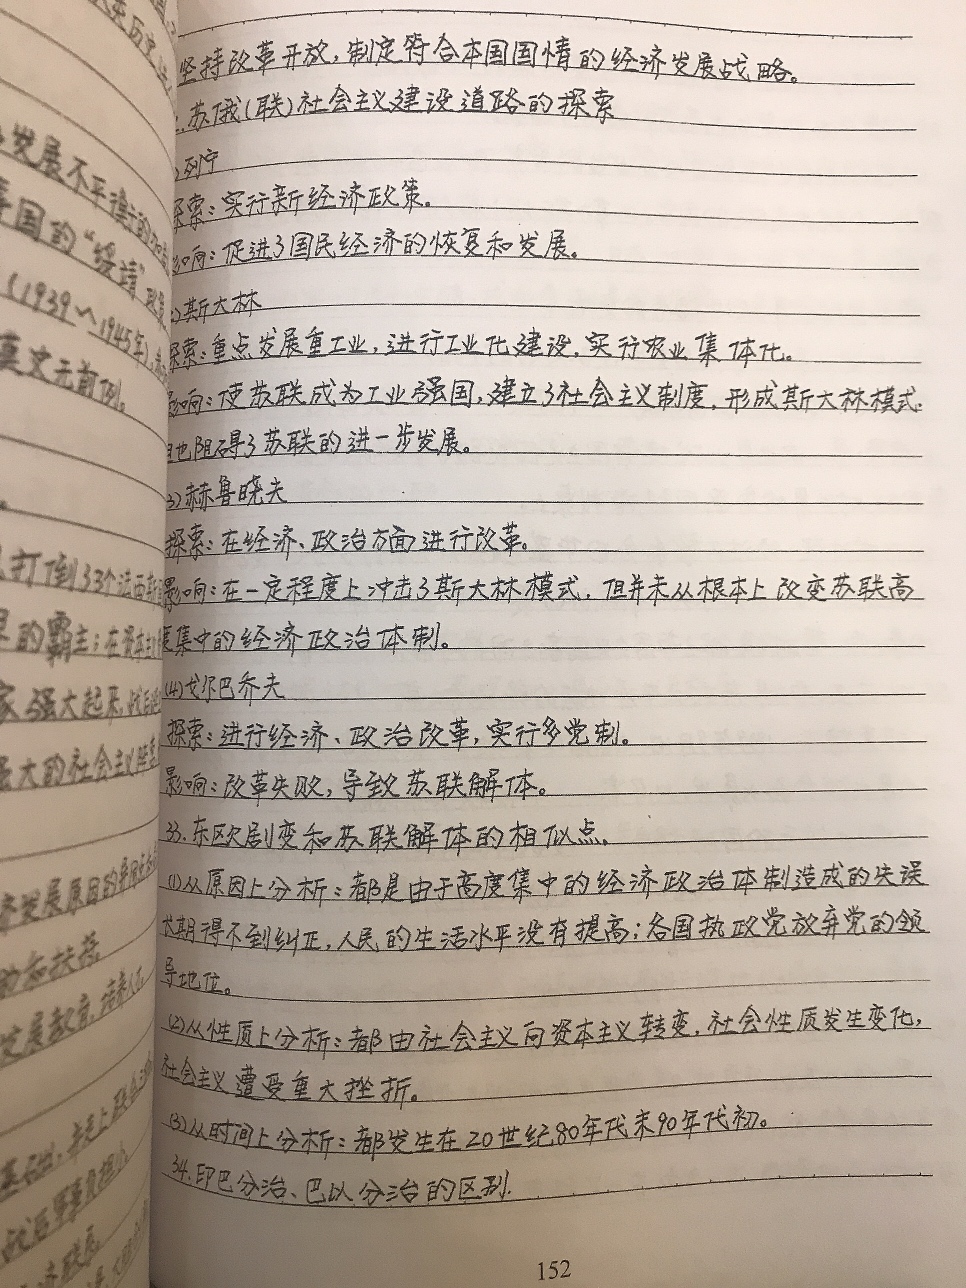 坚持改革开放,制定符合本国国情的经济发展战略。
苏俄(联)社会主义建设道路的探索
列宁
探索:实行新经济政策。
影响:促进了国民经济的恢复和发展。
斯大林
探索:重点发展重工业,进行工业化建设,实行农业集体化。
影响:使苏联成为工业强国,建立了社会主义制度,形成斯大林模式.
但也阻碍了苏联的进一步发展。
(3)赫鲁晓夫
探索:在经济、政治方面进行改革。
影响:在一定程度上冲击了斯大林模式,但并未从根本上改变苏联高
度集中的经济政治体制。
(4)戈尔巴乔夫
探索:进行经济、政治改革,实行多党制。
影响:改革失败,导致苏联解体。
33.东欧剧变和苏联解体的相似点.
(1)从原因上分析:都是由于高度集中的经济政治体制造成的失误
长期得不到纠正,人民的生活水平没有提高;各国执政党放弃党的领
导地位。
(2)从性质上分析:都由社会主义向资本主义转变,社会性质发生变化,
社会主义遭受重大挫折。
(3)从时间上分析:都发生在20世纪80年代末90年代初。
34.印巴分治、巴以分治的区别.
152
发展不平衡
国的"绥靖"
(1939~1945年)
英文元前例。
打倒了3个法西斯
的霸主;在资本主
家强大起来,战后
强大的社会主义
发展原因的异同
的和扶持。
发展教育,培养人才